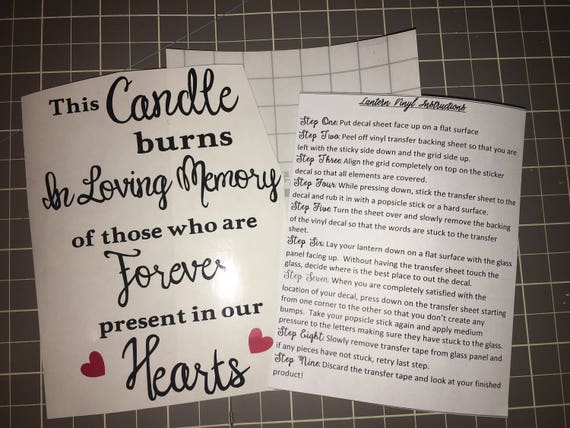 This Candle
burns
In Loving Memory
of those who are
Forever
present in our
Hearts
Lantern Vinyl Instructions
Step One: Put decal sheet face up on a flat surface
Step Two: Peel off vinyl transfer backing sheet so that you are
left with the sticky side down and the grid side up.
Step Three: Align the grid completely on top on the sticker
decal so that all elements are covered.
Step Four: While pressing down, stick the transfer sheet to the
decal and rub it in with a popsicle stick or a hard surface.
Step Five: Turn the sheet over and slowly remove the backing
of the vinyl decal so that the words are stuck to the transfer
sheet.
Step Six: Lay your lantern down on a flat surface with the glass
panel facing up. Without having the transfer sheet touch the
glass, decide where is the best place to out the decal.
Step Seven: When you are completely satisfied with the
location of your decal, press down on the transfer sheet starting
from one corner to the other so that you don't create any
bumps. Take your popsicle stick again and apply medium
pressure to the letters making sure they have stuck to the glass.
Step Eight: Slowly remove transfer tape from glass panel and
if any pieces have not stuck, retry last step.
Step Nine: Discard the transfer tape and look at your finished
product!